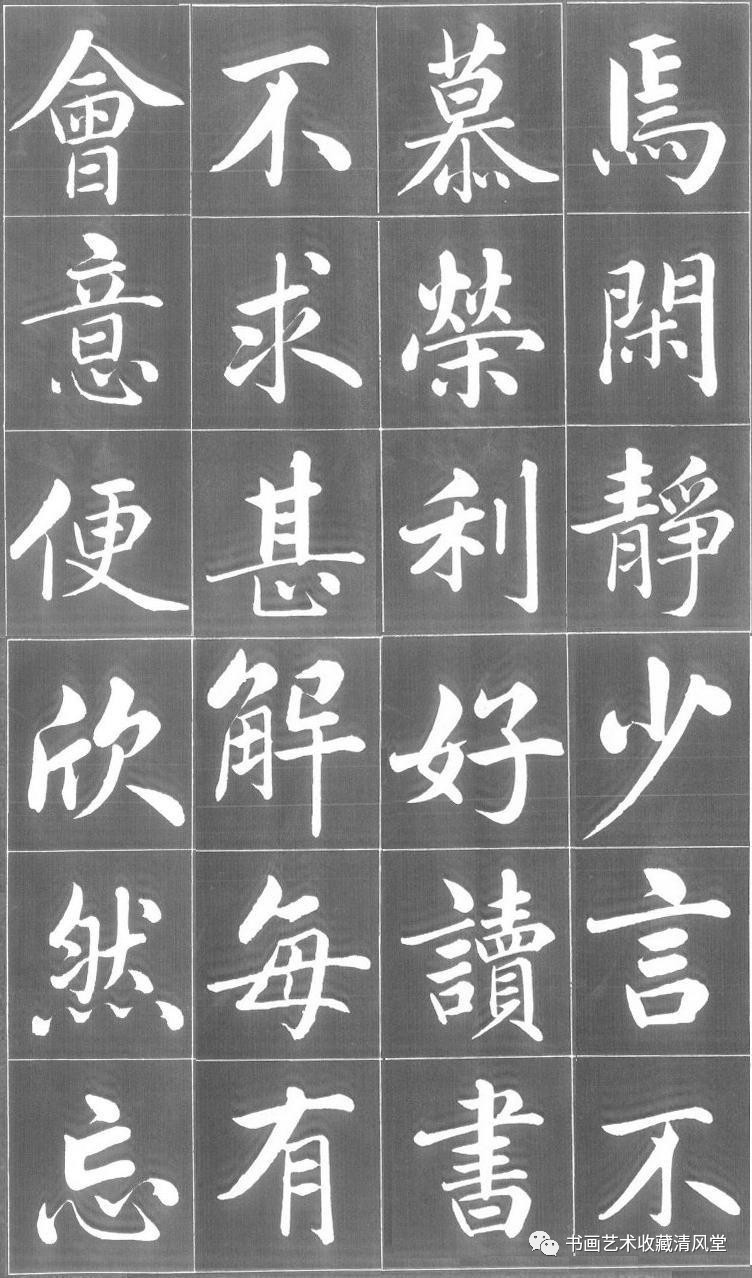 焉閑靜少言不
慕榮利好讀書
不求甚解每有
會意便欣然忘
书画艺术收藏清风堂